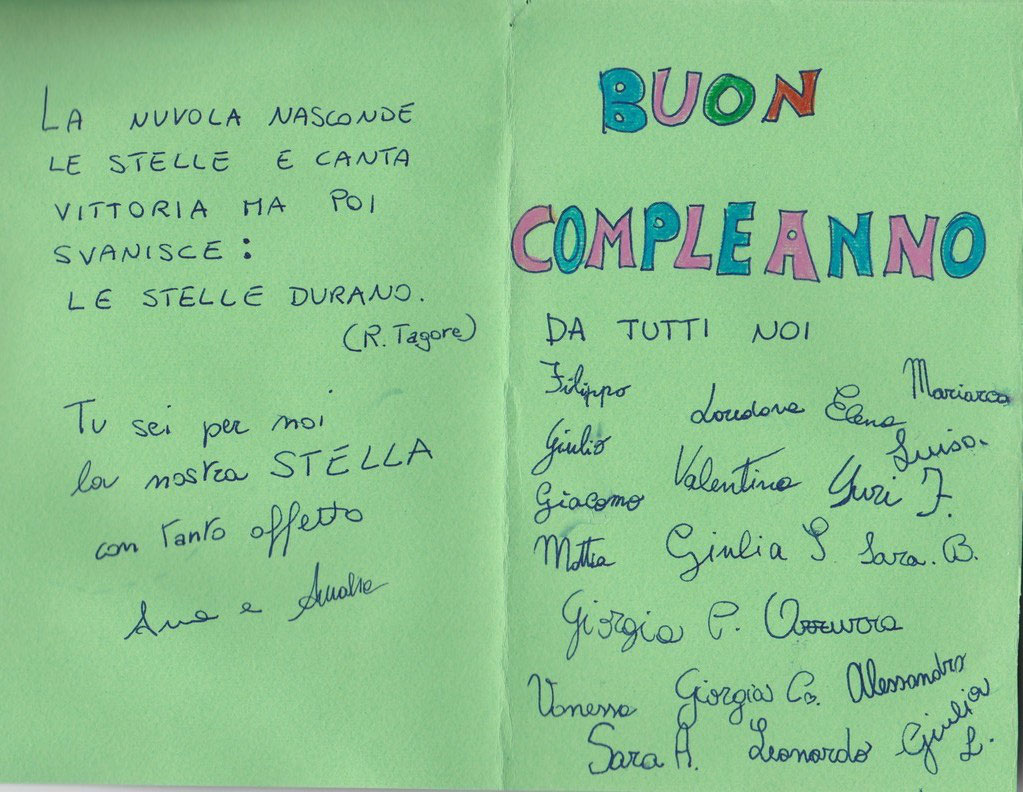 LA NUVOLA NASCONDE
LE STELLE E CANTA
VITTORIA MA POI
SVANISCE:
LE STELLE DURANO.
(R. Tagore)
Tu sei per noi
la nostra STELLA
con tanto affetto
Ana e Amalia
BUON
COMPLEANNO
DA TUTTI NOI
Filippo Loredana Elena Mariarca
Giulio Luisa.
Giacomo Valentina Yuri F.
Mattia Giulia S Sara. B.
Giorgia P. Azzurra
Vanessa Giorgia Co. Alessandro
Sara A. Leonardo Giulia L.